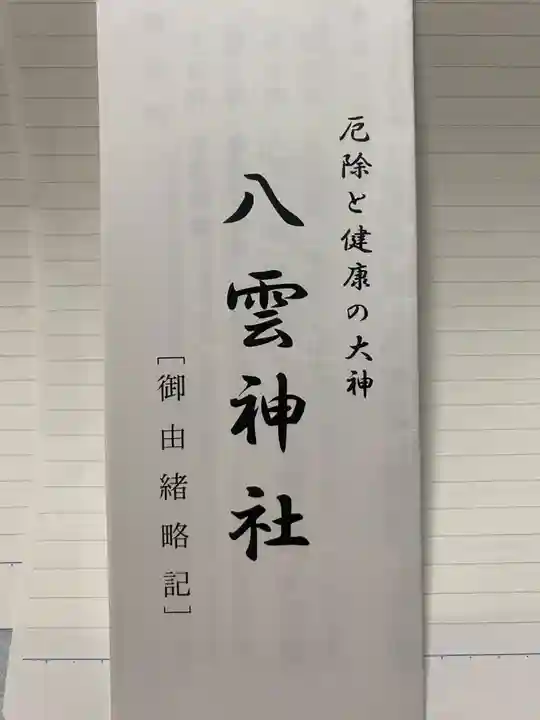 厄除と健康の大神
八雲神社
[御由緒略記]